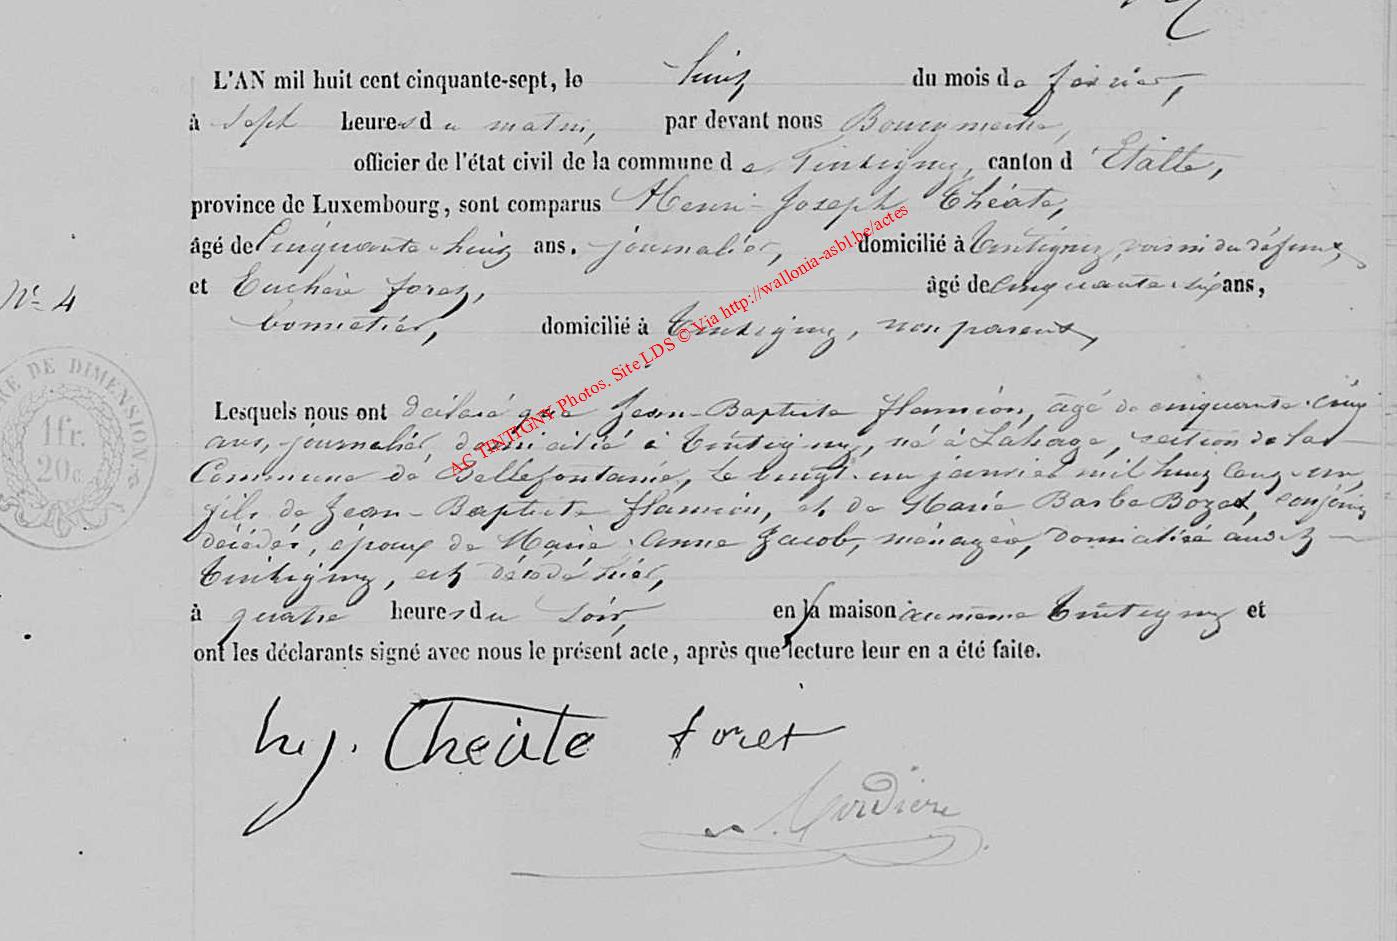 L'AN mil huit cent cinquante-sept, le huit du mois de février,
à sept heures du matin, par devant nous Bourgmestre,
officier de l'état civil de la commune de Tintigny, canton d'Etalle,
province de Luxembourg, sont comparus Henri-Joseph Théate,
âgé de Cinquante-huit ans. journalier, domicilié à Tintigny, voisin du défunt,
et Euchère foret, âgé de cinquante-six ans,
N° 4
bonnetier, domicilié à Tintigny, non parent,
TIMBRE DE DIMENSION.
1 fr.
20 c.
Lesquels nous ont déclaré que Jean-Baptiste flamion, âgé de cinquante-cinq
ans, journalier, domicilié à Tintigny, né à Lahage, section de la
Commune de Bellefontaine, le vingt-un janvier mil huit cent-un,
fils de Jean-Baptiste flamion, et de Marie Barbe Bozet, conjoints
décédés, époux de Marie-Anne Jacob, ménagère, domiciliée audit
Tintigny, est décédé hier,
à quatre heures du soir, en sa maison au même Tintigny et
ont les déclarants signé avec nous le présent acte, après que lecture leur en a été faite.
h j. Theâte foret
AC TINTIGNY Photos. Site LDS © Via http://wallonia-asbl.be/actes